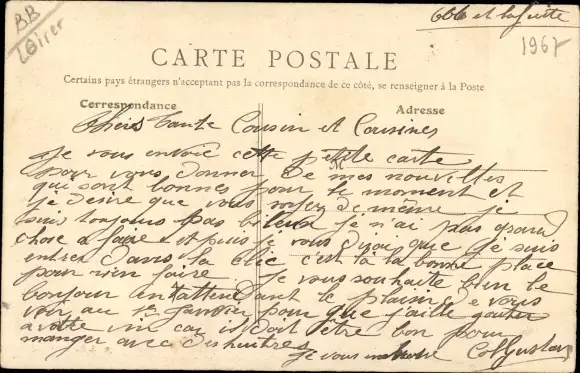 BB
Loiret
et la suite
1967
CARTE POSTALE
Certains pays étrangers n'acceptant pas la correspondance de ce côté, se renseigner à la Poste
Correspondance
Adresse
Chers Tante Cousin et Cousines
M
Je vous envoie cette petite carte
pour vous donner de mes nouvelles
qui sont bonnes pour le moment et
je desire que vous soyez de même je
suis toujours pas bileux je n'ai pas grand
chose a faire et puis je vous dirai que je suis
entrer dans la clic c'est la la bonne place
pour rien faire. Je vous souhaite bien le
bonjour en attendant le plaisir de vous
voir au 1er janvier pour que j'aille gouter
a votre vin car il doit être bon pour
manger avec des huitres
Je vous Gustave